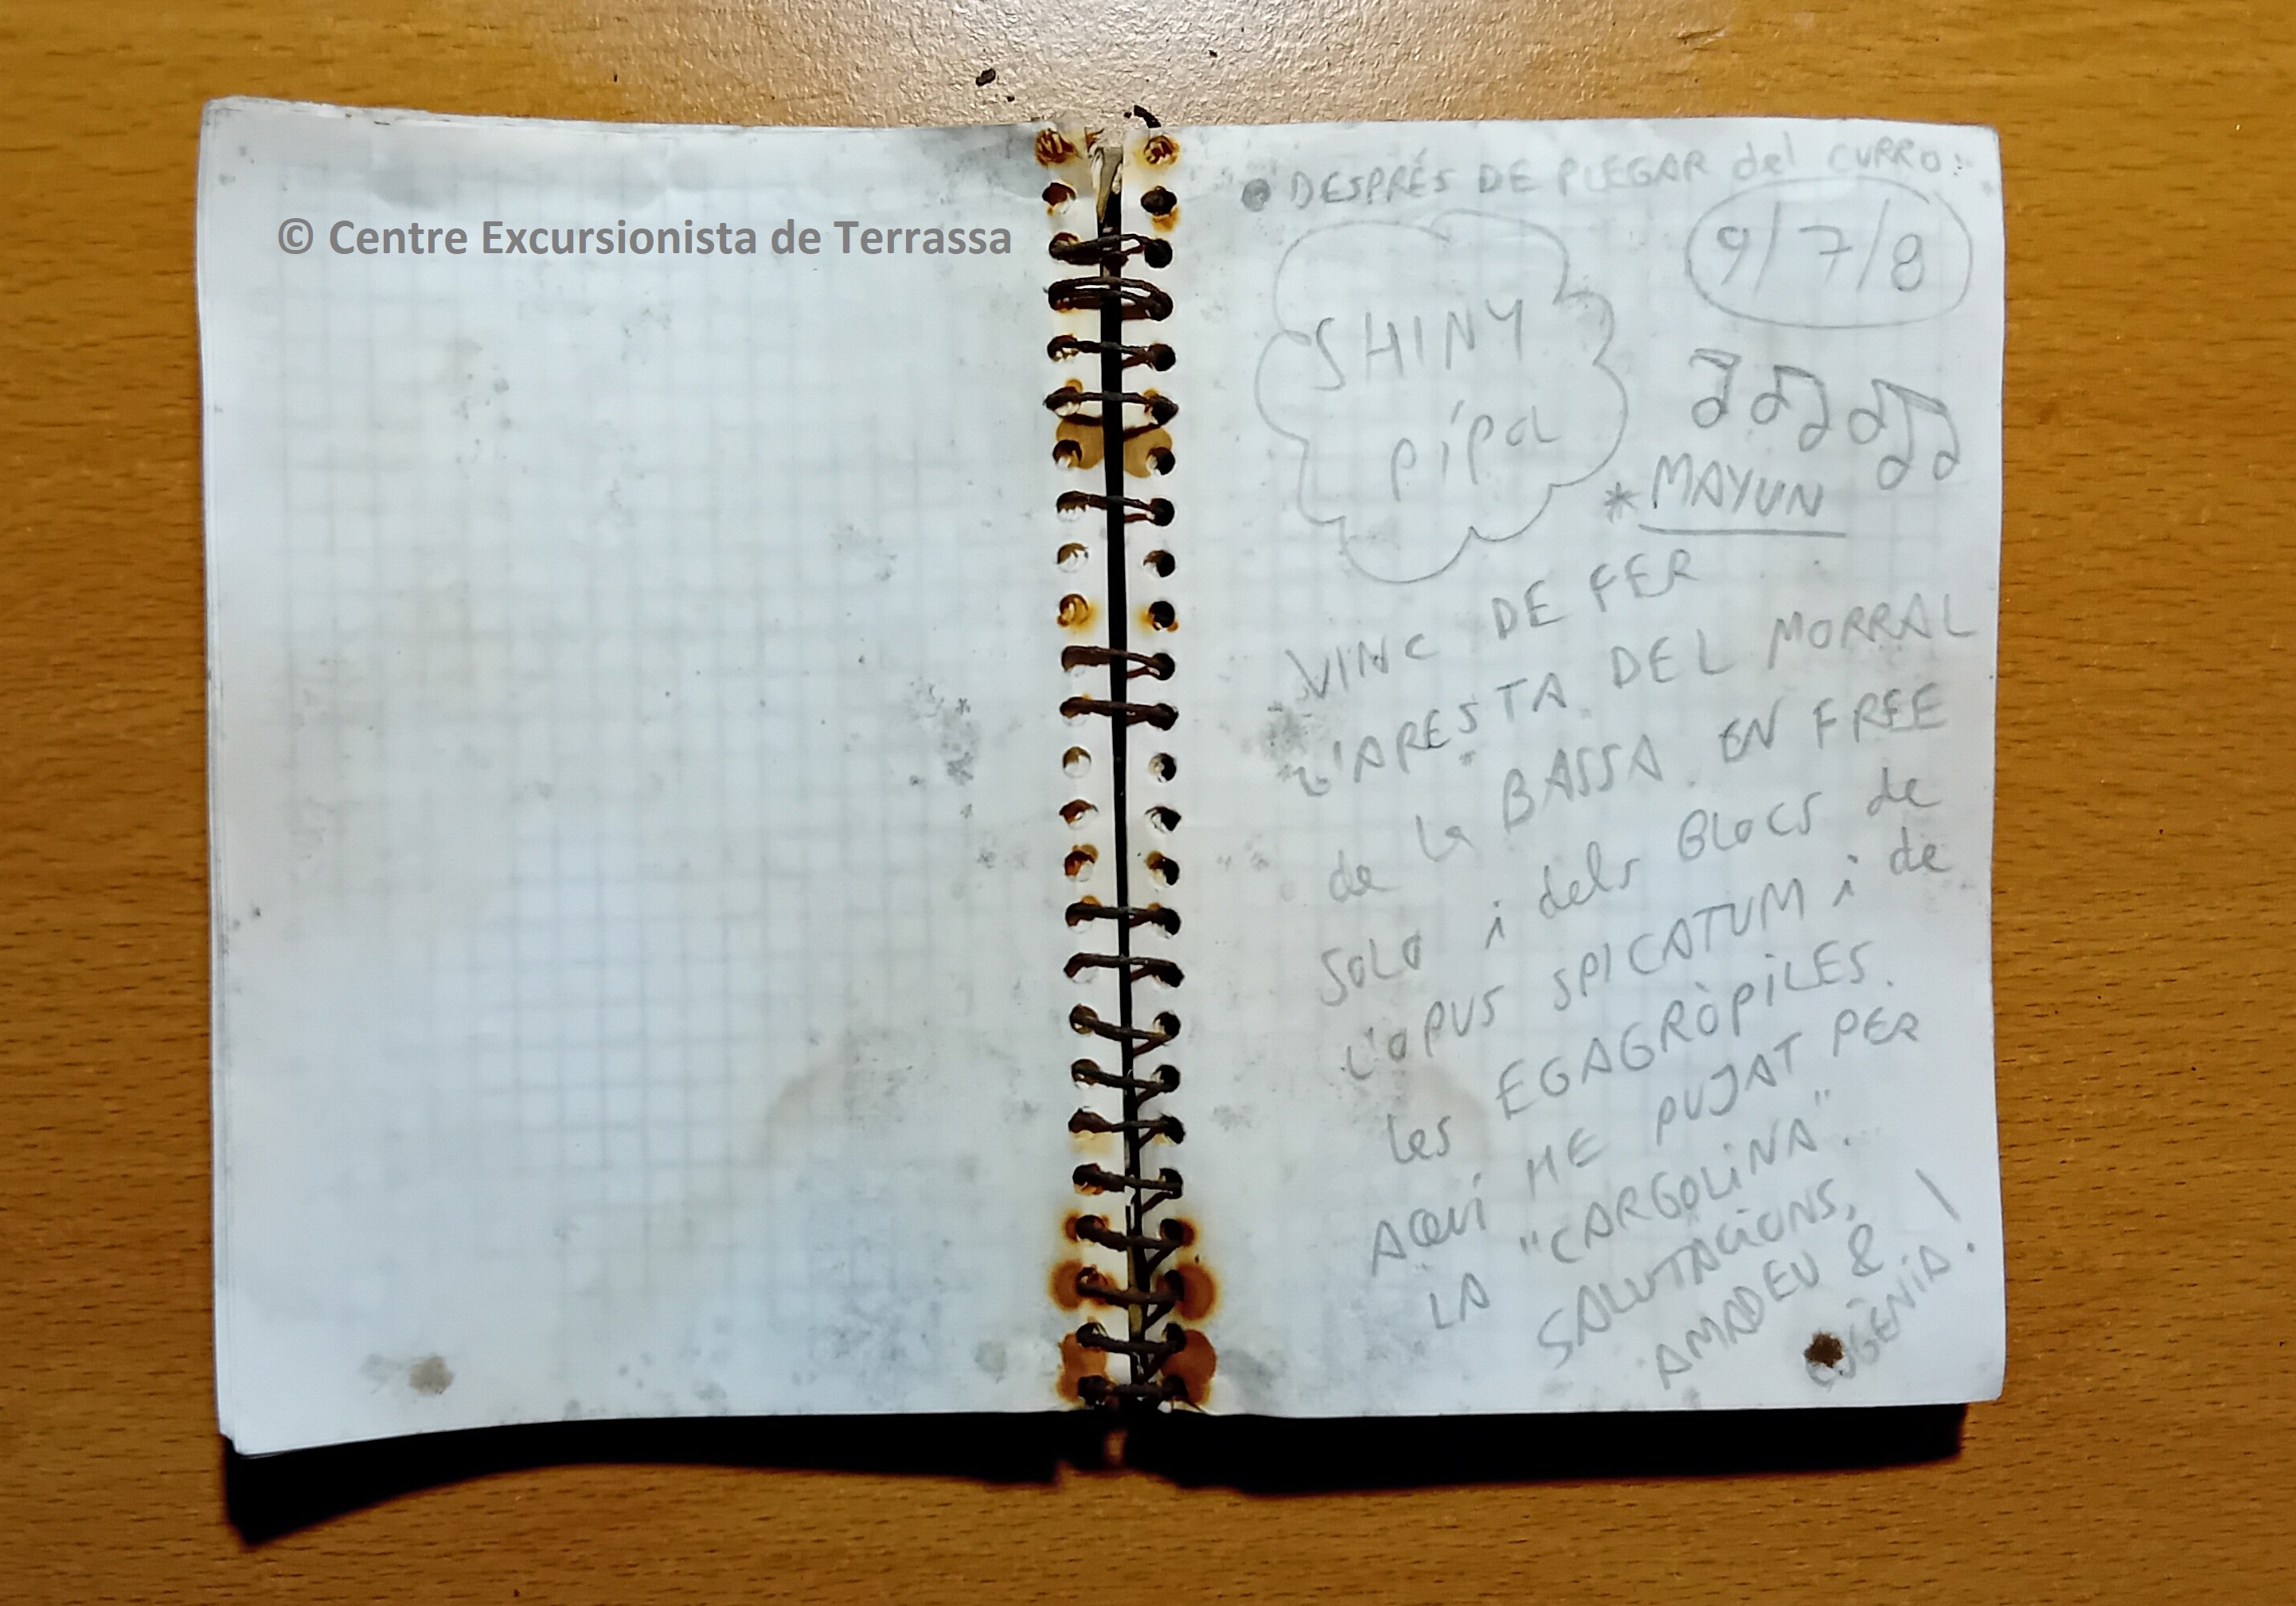 © Centre Excursionista de Terrassa
● DESPRÉS DE PLEGAR del CURRO:
9/7/8
SHINY
pípa
* MAYUN
VINC DE FER
L'ARESTA DEL MORRAL
de la BASSA EN FREE
SOLO i dels BLOCS de
L'OPUS SPICATUM i de
les EGAGRÒPILES.
AQUÍ HE PUJAT PER
LA "CARGOLINA".
SALUTACIONS,
AMADEU &
EUGÈNIA!